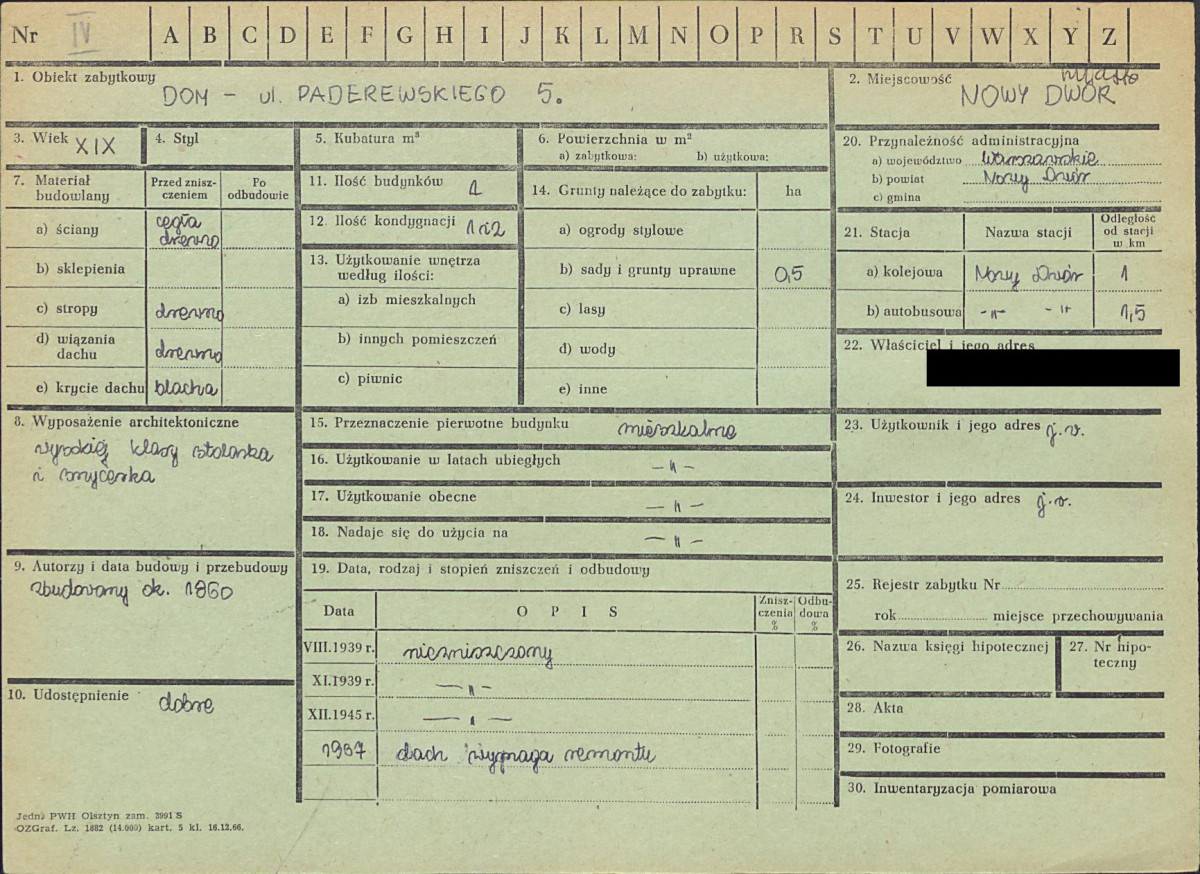 Nr IV A B C D E F G H I J K L M N O P R S T U V W X Y Z
1. Obiekt zabytkowy
DOM - ul. PADEREWSKIEGO 5.
2. Miejscowość
miasto
NOWY DWÓR
3. Wiek XIX
4. Styl
5. Kubatura m³
6. Powierzchnia w m²
a) zabytkowa: b) użytkowa:
7. Materiał budowlany
Przed zniszczeniem
Po odbudowie
a) ściany
cegła
drewno
b) sklepienia
c) stropy drewno
d) wiązania
dachu drewno
e) krycie dachu blacha
8. Wyposażenie architektoniczne
wysokiej klasy stolarka
i snycerka
9. Autorzy i data budowy i przebudowy
zbudowany ok. 1860
10. Udostępnienie dobre
11. Ilość budynków 1
12. Ilość kondygnacji 1 i 2
13. Użytkowanie wnętrza
według ilości:
a) izb mieszkalnych
b) innych pomieszczeń
c) piwnic
14. Grunty należące do zabytku: ha
a) ogrody stylowe
b) sady i grunty uprawne 0,5
c) lasy
d) wody
e) inne
15. Przeznaczenie pierwotne budynku mieszkalne
16. Użytkowanie w latach ubiegłych -"-
17. Użytkowanie obecne -"-
18. Nadaje się do użycia na -"-
19. Data, rodzaj i stopień zniszczeń i odbudowy
Data OPIS Zniszczenia % Odbudowa %
VIII.1939 r. niezniszczony
XI.1939 r. -"-
XII.1945 r. -"-
1967 dach wymaga remontu
20. Przynależność administracyjna
a) województwo Warszawskie
b) powiat Nowy Dwór
c) gmina
21. Stacja Nazwa stacji Odległość od stacji w km
a) kolejowa Nowy Dwór 1
b) autobusowa -"- -"- 1,5
22. Właściciel i jego adres
23. Użytkownik i jego adres j.w.
24. Inwestor i jego adres j.w.
25. Rejestr zabytku Nr
rok miejsce przechowywania
26. Nazwa księgi hipotecznej
27. Nr hipoteczny
28. Akta
29. Fotografie
30. Inwentaryzacja pomiarowa
Jedn. PWH Olsztyn zam. 3991 S
OZGraf. Lz. 1882 (14.000) kart. 5 kl. 16.12.66.